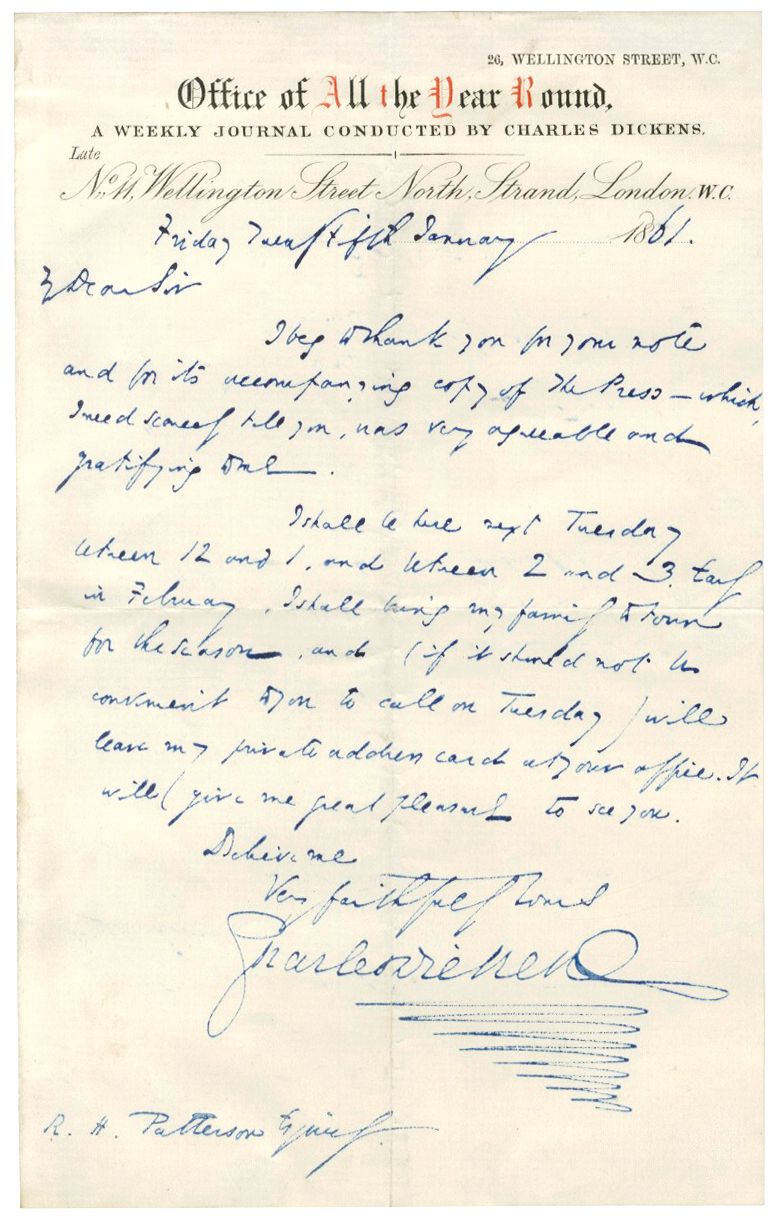 26, WELLINGTON STREET, W.C.
Office of All the Year Round,
A WEEKLY JOURNAL CONDUCTED BY CHARLES DICKENS.
Late
No. 11, Wellington Street North, Strand, London. W.C.
Friday Twenty Fifth January 1861.
My Dear Sir
I beg to thank you for your note
and for its accompanying copy of The Press – which,
I need scarcely tell you, was very agreeable and
gratifying to me.
I shall be here next Tuesday
between 12 and 1, and between 2 and 3. Early
in February, I shall bring my family to town
for the season, and (if it should not be
convenient to you to call on Tuesday) will
leave my private address card at your office. It
will give me great pleasure to see you.
Believe me
Very faithfully Yours
Charles Dickens
R. H. Patterson Esquire.